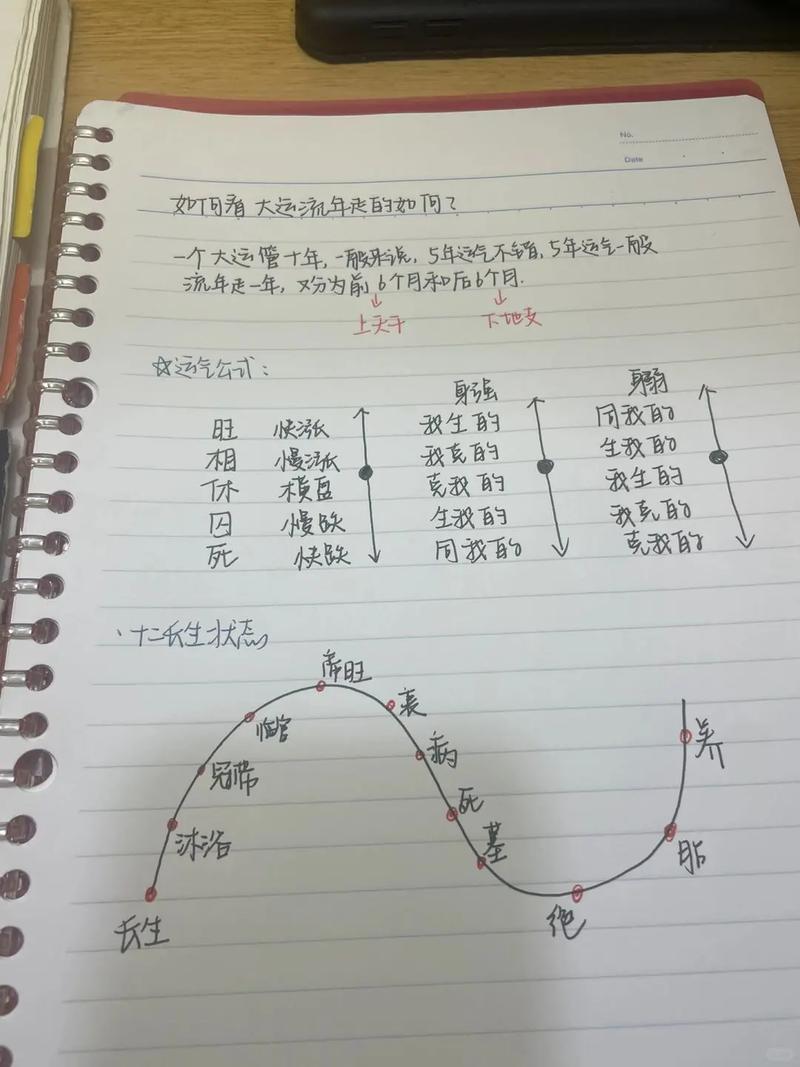 No.
Date
如何看大运流年走的如何？
一个大运管十年，一般来说，5年运气不错，5年运气一般
流年走一年，又分为前6个月和后6个月.
上天干 下地支
☆运气公式：
身强 身弱
旺 快涨 我生的 同我的
相 慢涨 我克的 生我的
休 横盘 克我的 我生的
囚 慢跌 生我的 我克的
死 快跌 同我的 克我的
、十二长生状态
帝旺
衰
临官
病
养
冠带
死
沐浴
墓
胎
长生
绝